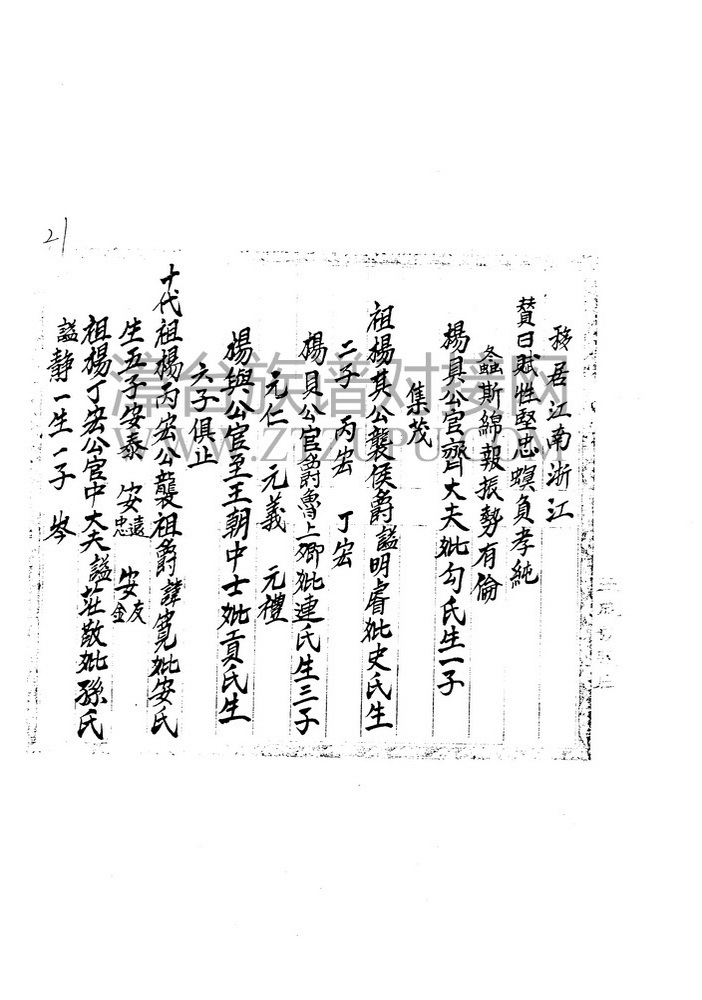 21
移居江南浙江
贊曰賦性堅忠螟負孝純
螽斯綿報振勢有倫
楊員公官齊大夫妣勾氏生一子
集茂
祖楊其公襲侯爵謚明睿妣史氏生
二子 丙宏 丁宏
楊貝公官爵魯上卿妣連氏生三子
元仁 元義 元禮
楊與公官至王朝中士妣貢氏生
六子俱止
十代祖楊丙宏公襲祖爵諱寬妣安氏
生五子安泰 安遠忠 安友金
祖楊丁宏公官中大夫謚莊敬妣孫氏
謚靜一生一子 岑
漳台族譜对接网
WWW.ZTZUPU.COM